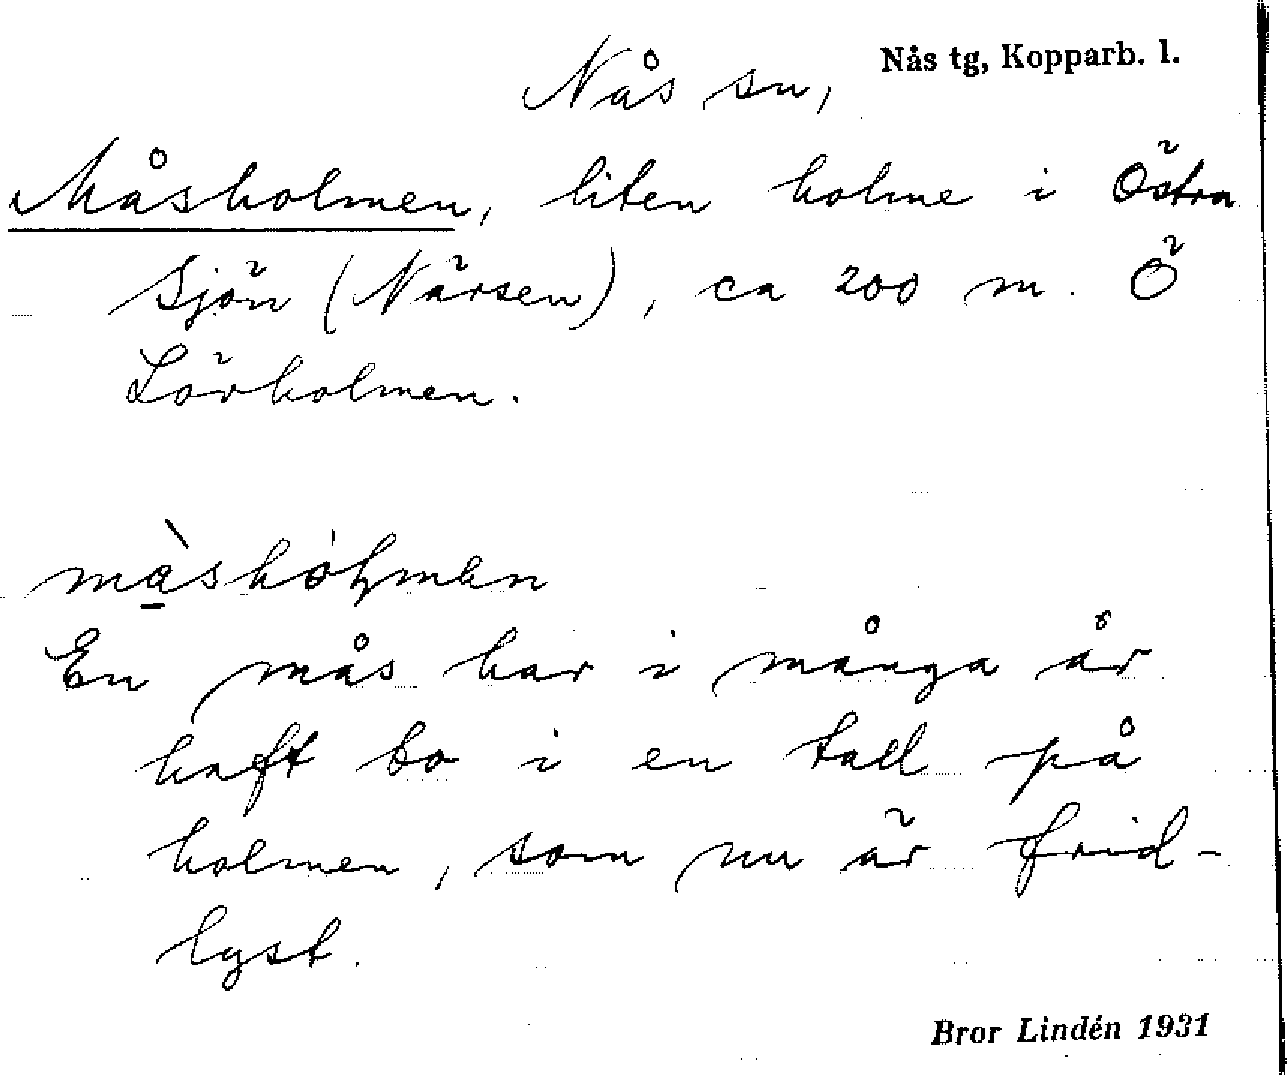 Nås tg, Kopparb. l.
Nås sn,
Måsholmen, liten holme i Östra
Sjön (Närsen), ca 200 m. Ö
Lövholmen.
En mås har i många år
haft bo i en tall på
holmen, som nu är frid-
lyst.
Bror Lindén 1931